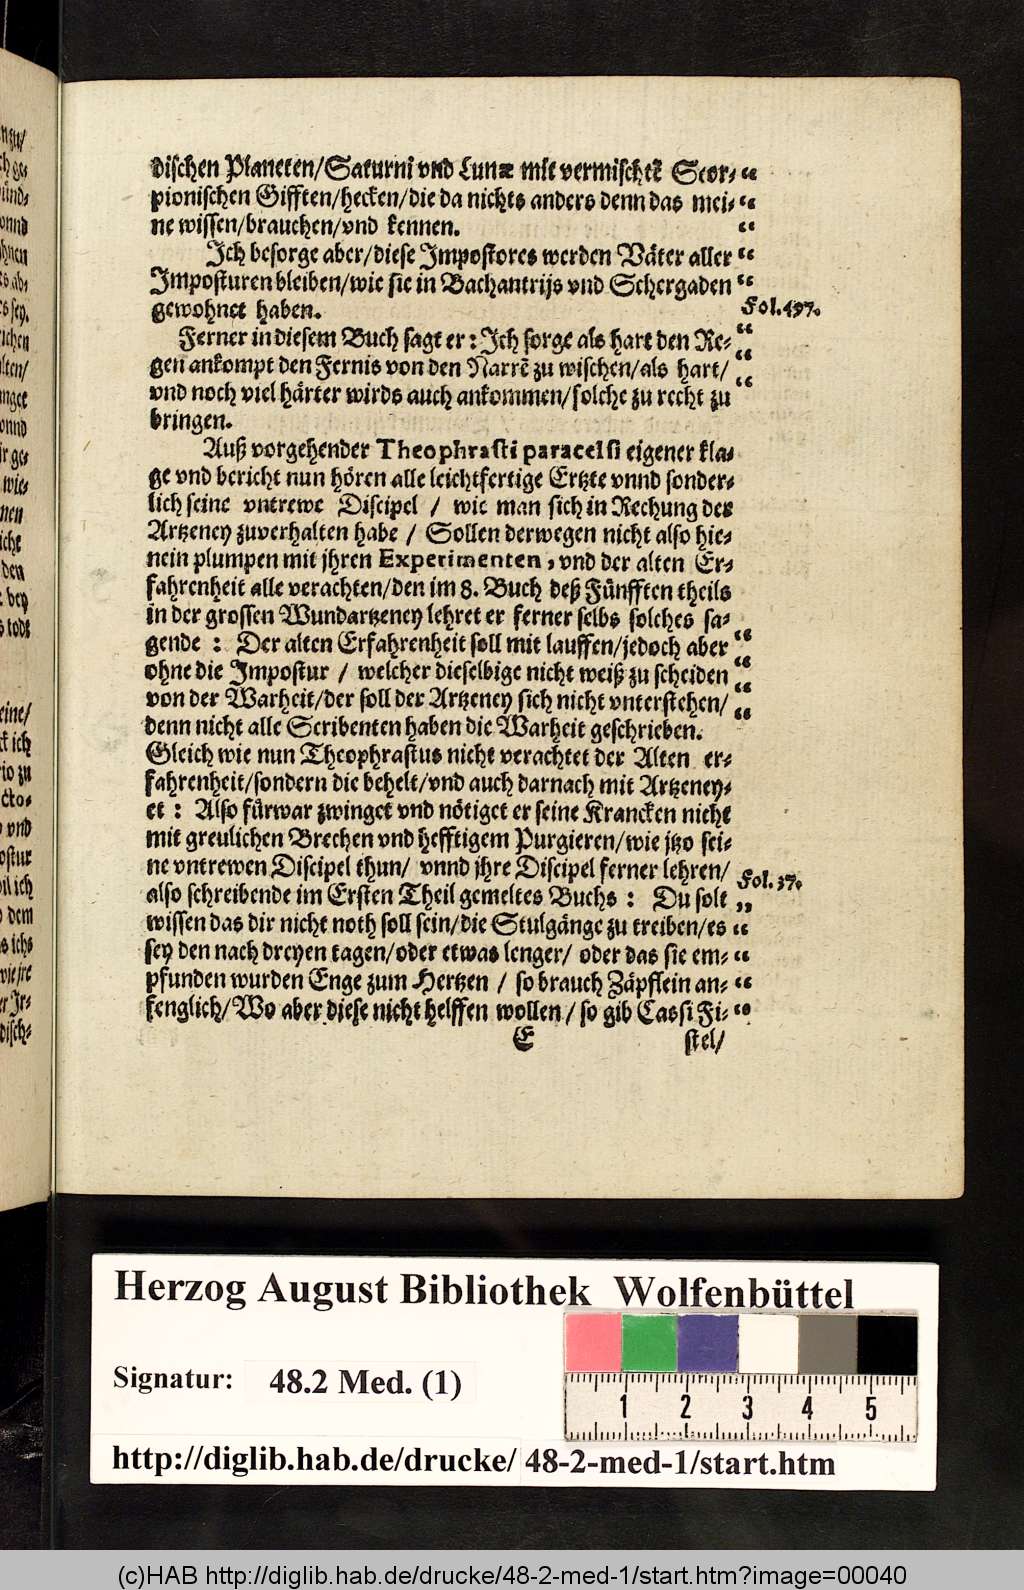 dischen Planeten/Saturni vnd Lunæ mit vermischtẽ Scor-
pionischen Gifften/hecken/die da nichts anders denn das mei-
ne wissen/brauchen/vnd kennen.
Ich besorge aber/diese Impostores werden Väter aller
Imposturen bleiben/wie sie in Bachantrijs vnd Schergaden
gewohnet haben.
Fol. 497.
Ferner in diesem Buch sagt er: Ich sorge als hart den Re-
gen ankompt den Fernis von den Narrẽ zu wischen/als hart/
vnd noch viel härter wirds auch ankommen/solche zu recht zu
bringen.
Auß vorgehender Theophrasti paracelsi eigener kla-
ge vnd bericht nun hören alle leichtfertige Ertzte vnnd sonder-
lich seine vntrewe Discipel / wie man sich in Rechung der
Artzeney zuverhalten habe / Sollen derwegen nicht also hie-
nein plumpen mit jhren Experimenten, vnd der alten Er-
fahrenheit alle verachten/den im 8. Buch deß Fünfften theils
in der grossen Wundartzeney lehret er ferner selbs solches sa-
gende : Der alten Erfahrenheit soll mit lauffen/jedoch aber
ohne die Impostur / welcher dieselbige nicht weiß zu scheiden
von der Warheit/der soll der Artzeney sich nicht vnterstehen/
denn nicht alle Scribenten haben die Warheit geschrieben.
Gleich wie nun Theophrastus nicht verachtet der Alten er-
fahrenheit/sondern die behelt/vnd auch darnach mit Artzeney-
et : Also fürwar zwinget vnd nötiget er seine Krancken nicht
mit greulichen Brechen vnd hefftigem Purgieren/wie jtzo sei-
ne vntrewen Discipel thun/ vnnd jhre Discipel ferner lehren/
Fol. 37.
also schreibende im Ersten Theil gemeltes Buchs : Du solt
wissen das dir nicht noth soll sein/die Stulgänge zu treiben/es
sey den nach dreyen tagen/oder etwas lenger/ oder das sie em-
pfunden wurden Enge zum Hertzen / so brauch Zäpflein an-
fenglich/Wo aber diese nicht helffen wollen / so gib Cassi Fi-
E
stel/
Herzog August Bibliothek Wolfenbüttel
Signatur: 48.2 Med. (1)
1 2 3 4 5
http://diglib.hab.de/drucke/ 48-2-med-1/start.htm
(c)HAB http://diglib.hab.de/drucke/48-2-med-1/start.htm?image=00040